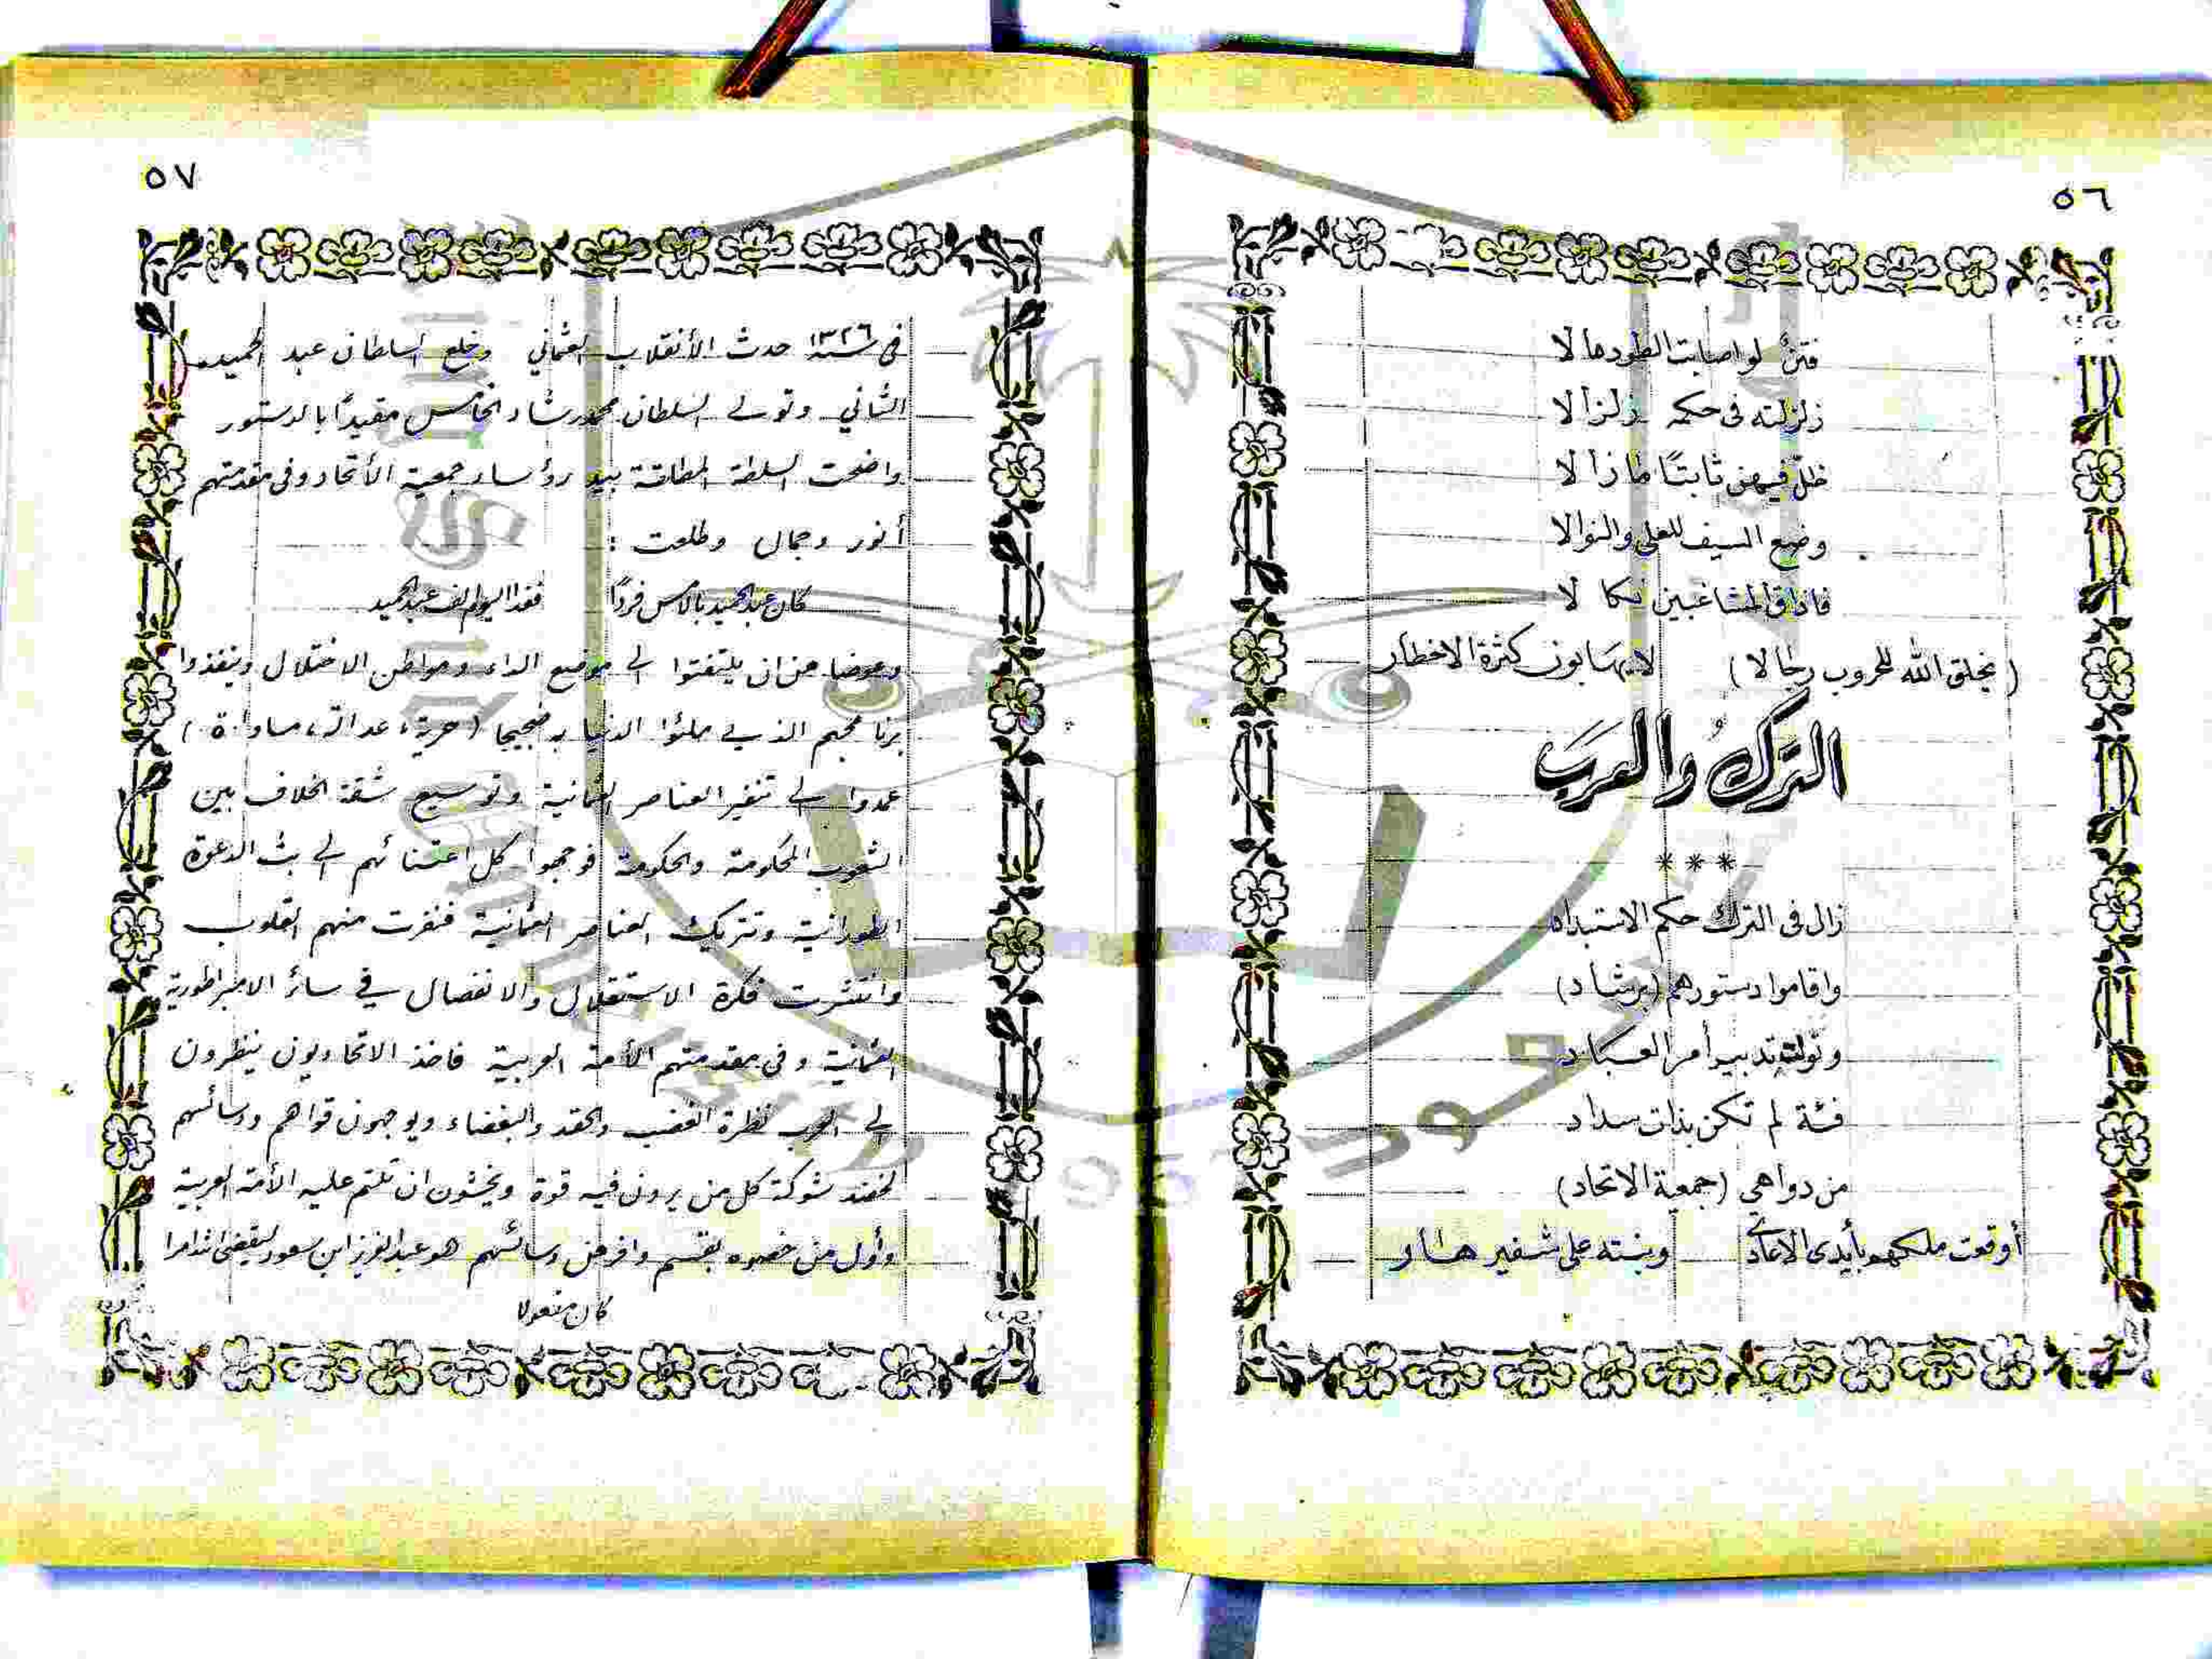 ٥٦
فتنٌ لو اصابت الطود مالا
زلزلته في حكمه زلزالا
ظلّ فيهن ثابتًا ما زالا
وضع السيف للعلى والنوالا
فاذاق المشاغبين نكالا
(يخلق الله للحروب رجالا) لا يهابون كثرة الاخطار
الترك والعرب
***
زال في الترك حكم الاستبداد
واقاموا دستورهم (برشاد)
وتولت تدبير أمر العباد
فئة لم تكن بذات سداد
من دواهي (جمعية الاتحاد)
أوقعت ملكهم بأيدى الاعادي وبنته على شفير هار
٥٧
في سنة ١٣٢٦ حدث الأنقلاب العثماني وخلع السلطان عبد الحميد
الثاني وتولى السلطان محمد رشاد الخامس مقيدًا بالدستور
واضحت السلطة المطلقة بيد رؤساء جمعية الأتحاد وفي مقدمتهم
أنور وجمال وطلعت :
كان عبد الحميد بالامس فردًا فغدا اليوم الف عبد الحميد
وعوضا من ان يلتفتوا الى موضع الداء ومواطن الاختلال وينفذوا
برنامجهم الذي ملئوا الدنيا به ضجيجا (حرية، عدالة، مساواة)
عمدوا الى تنفير العناصر العثمانية وتوسيع شقة الخلاف بين
الشعوب المحكومة والحكومة فوجهوا كل اعتنائهم الى بث الدعوة
الطورانية وتتريك العناصر العثمانية فنفرت منهم القلوب
وانتشرت فكرة الاستقلال والانفصال في سائر الامبراطورية
العثمانية وفي مقدمتهم الأمة العربية فاخذ الاتحاديون ينظرون
الى العرب نظرة الغضب والحقد والبغضاء ويوجهون قواهم ودسائسهم
لخضد شوكة كل من يرون فيه قوة ويخشون ان تلتم عليه الأمة العربية
وأول من خصوه بقسم وافر من دسائسهم هو عبد العزيز ابن سعود ليقضي الله امرا
كان مفعولا